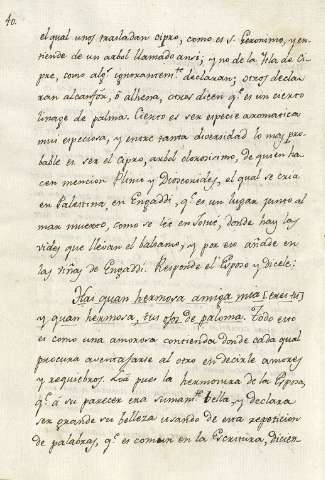 40.
el qual unos trasladan cipro, como es S. Geronimo, y en-
tiende de un arbol llamado ansi; y no de la Isla de Ci-
pre, como algs. ignorantemte. declaran; otros decla-
ran alcanfor, ò alheña, otros dicen qe. es un cierto
linage de palma. Cierto es ser especie aromatica
mui especiosa, y entre tanta diversidad lo mas pro-
bable es ser el cipro, arbol olorosisimo, de quien ha-
cen mencion Plinio y Dioscorides, el qual se cria
en Palestina, en Engaddi, qe. es un lugar junto al
mar muerto, como se lee en Josuè, donde hay las
vides que llevan el balsamo, y por eso añade en
las viñas de Engaddi. Responde el Esposo y dicele:
Hay quan hermosa amiga mia [eres tu]
y quan hermosa, tus ojos de paloma. Todo esto
es como una amorosa contienda donde cada qual
procura aventajarse al otro en decirle amores
y requiebros. Loa pues la hermosura de la Esposa,
qe. à su parecer era sumamte. bella, y declara
ser grande su belleza usando de esta repeticion
de palabras, qe. es comun en la Escritura, dicien